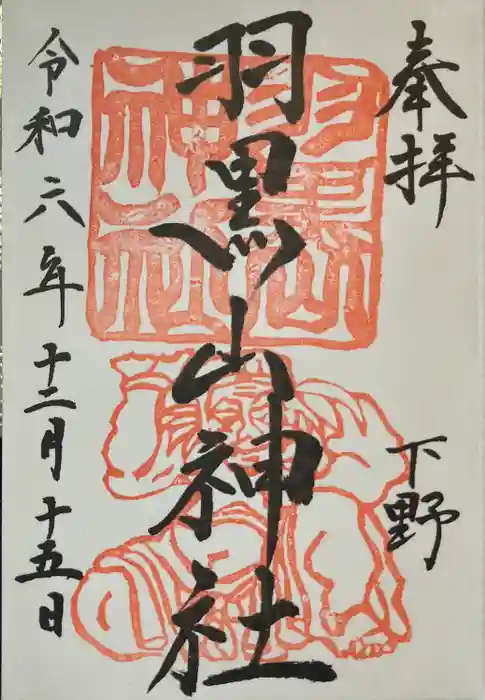 奉拝
下野
羽黒山神社
羽黒山神社
令和六年十二月十五日